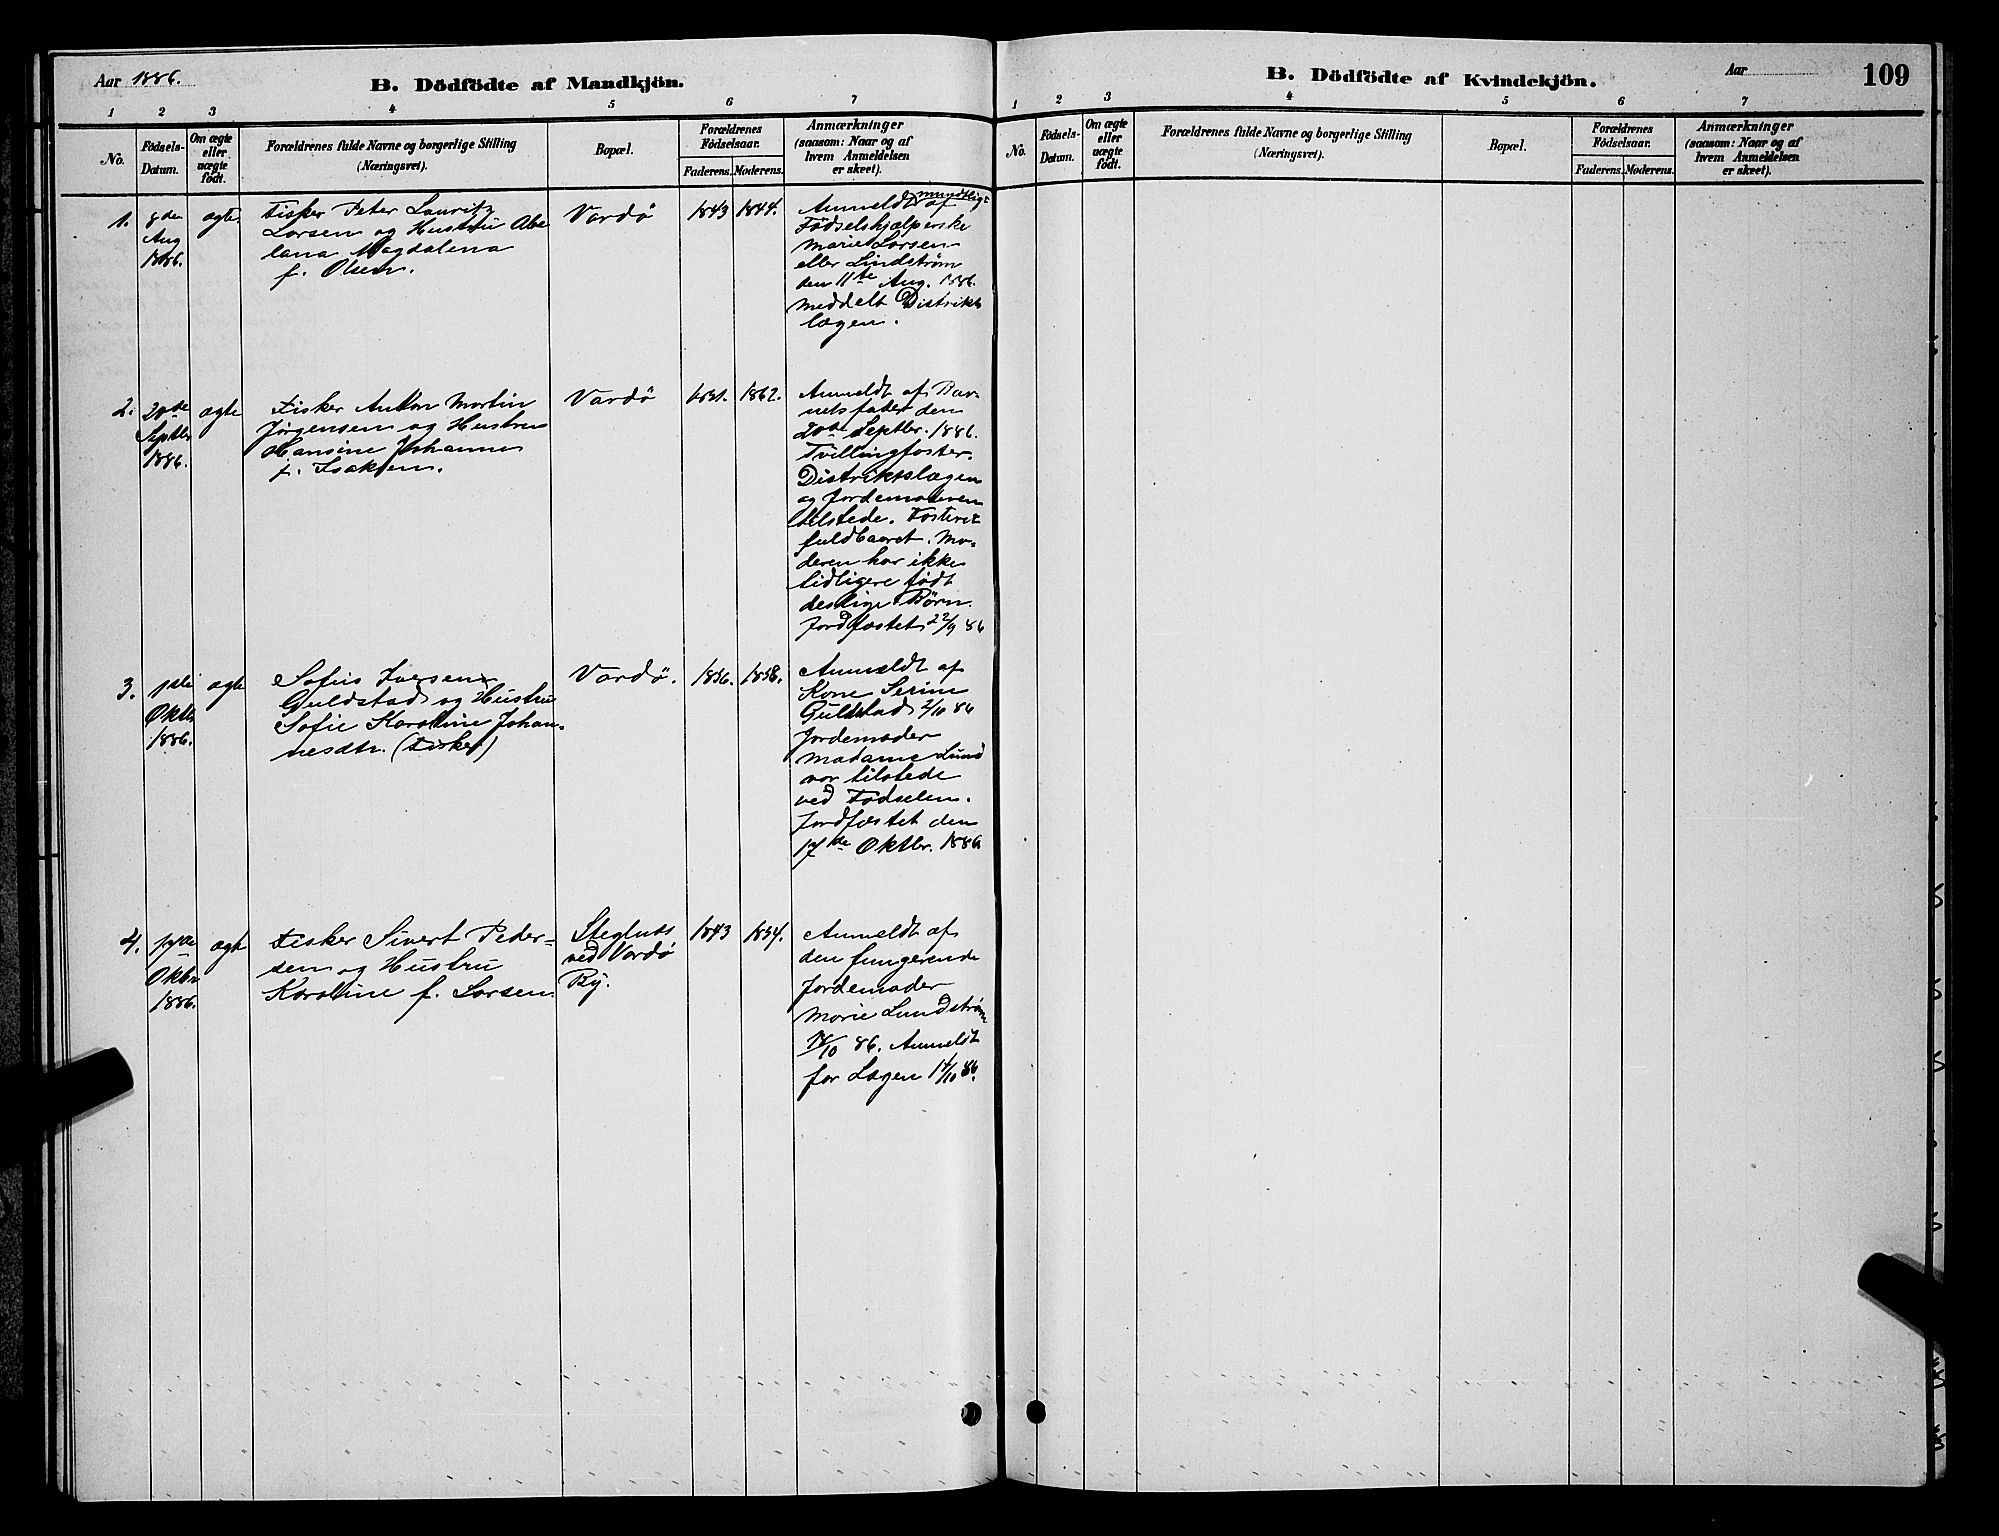 Aar 1886.
B. Dödfödte af Mandkjön.
1 2 3 4 5 6 7
No.
Födsels-
Datum.
Om ægte
eller
uægte
födt.
Forældrenes fulde Navne og borgerlige Stilling
(Næringsvei).
Bopæl.
Forældrenes
Födselsaar.
Faderens. Moderens.
Anmærkninger
(saasom: Naar og af
hvem Anmeldelsen
er skeet).
1.
8de
Aug
1886.
ægte
Fisker Peter Lauritz
Larsen og Hustru Abe-
lana Magdalena
f. Olsen.
Vardö
1843
1844.
mundtligt
Anmeldt af
Födselshjælperske
Marie Larsen
eller Lindstrøm
den 11te Aug. 1886.
Meddelt Distrikts
lægen.
2.
20de
Septbr
1886.
ægte
Fisker Anton Martin
Jørgensen og Hustru
Hansine Johanne
f. Isaksen.
Vardö
1862.
Anmeldt af Bar-
nets fader den
20de Septbr. 1886.
Tvillingfoster.
Distriktslægen
og Jordemoderen
tilstede. Fosteret
fuldbaaret. Mo-
deren har ikke
tidligere født
deslige Børn.
Jordfæstet 22/9 86
3.
1ste
Oktbr
1886.
ægte
Sofus Iversen
Guldstad og Hustru
Sofie Karoline Johan-
nesdtr. (Fisker)
Vardö.
1856.
1858.
Anmeldt af
Kone Serine
Guldstad 2/10 86
Jordemoder
Madame Lund
var tilstede
ved Fødselen.
Jordfæstet den
17de Oktbr. 1886
4.
Oktbr
1886.
ægte
Fisker Sivert Peder-
sen og Hustru
Karoline f. Larsen.
Stegluss
ved Vardö
By.
1843
1854.
Anmeldt af
den fungerende
Jordemoder
Marie Lundstrøm
86. Anmeldt
for Lægen 86.
B. Dödfödte af Kvindekjön.
Aar
109
1 2 3 4 5 6 7
No.
Födsels-
Datum.
Om ægte
eller
uægte
födt.
Forældrenes fulde Navne og borgerlige Stilling
(Næringsvei).
Bopæl.
Forældrenes
Födselsaar.
Faderens. Moderens.
Anmærkninger
(saasom: Naar og af
hvem Anmeldelsen
er skeet).